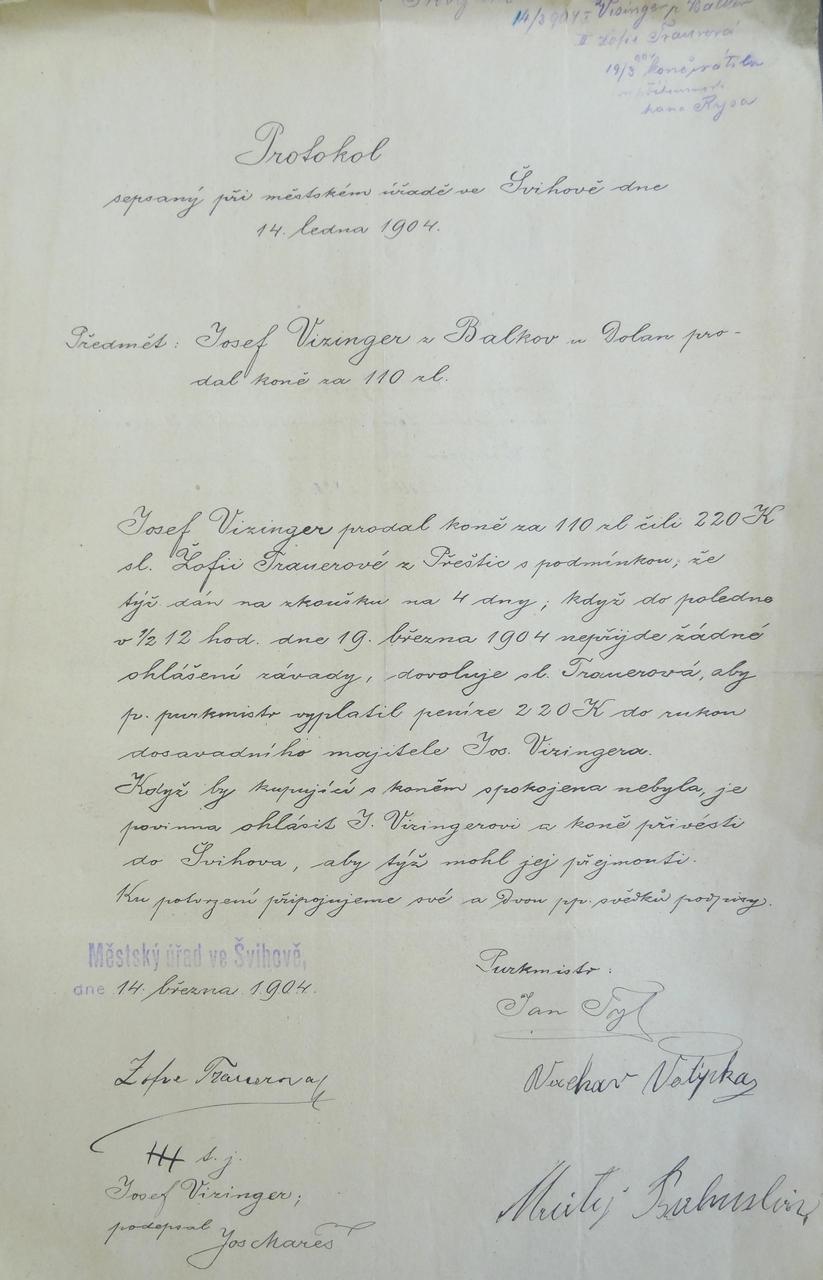 14/3 904 I Vizinger p. Balkov
II Žofie Trauerová
19/3 koně vrátila
Rysa
Protokol
sepsaný při městském úřadě ve Švihově dne
14. ledna 1904.
Předmět: Josef Vizinger z Balkov u Dolan pro-
dal koně za 110 zl.
Josef Vizinger prodal koně za 110 zl čili 220 K
sl. Žofii Trauerové z Přeštic s podmínkou, že
týž dán na zkoušku na 4 dny; když do poledne
v ½ 12 hod. dne 19. března 1904 nepřijde žádné
ohlášení závady, dovoluje sl. Trauerová, aby
p. purkmistr vyplatil peníze 220 K do rukou
dosavadního majitele Jos. Vizingera.
Když by kupující s koněm spokojena nebyla, je
povinna ohlásit J. Vizingerovi a koně přivésti
do Švihova, aby týž mohl jej přejmouti.
Ku potvrzení připojujeme své a dvou pp. svědků podpisy.
Městský úřad ve Švihově,
dne 14. března 1904.
Purkmistr:
Jan Tyl
Žofie Trauerova
Václav Votýpka
+++ t. j.
Josef Vizinger;
podepsal Jos Mareš
Matěj Bohuslav